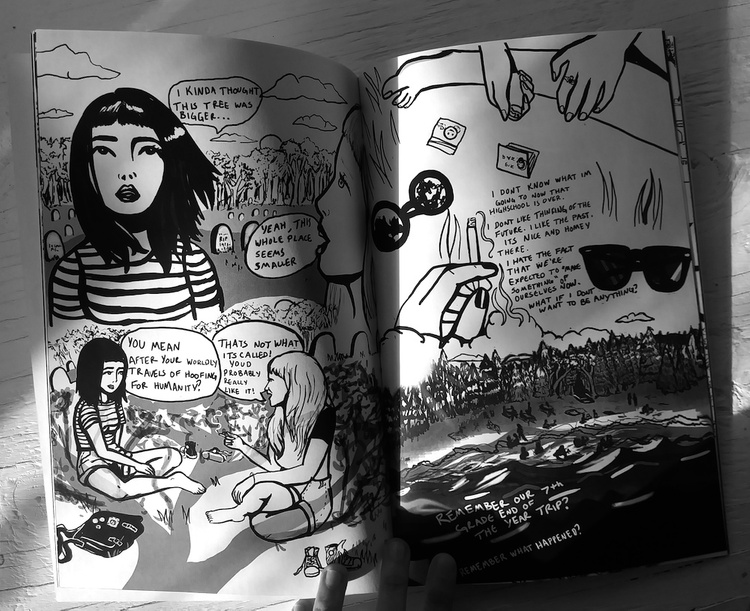 I KINDA THOUGHT
THIS TREE WAS
BIGGER...
YEAH, THIS
WHOLE PLACE
SEEMS
SMALLER
YOU MEAN
AFTER YOUR WORLDLY
TRAVELS OF HOOFING
FOR HUMANITY?
THATS NOT WHAT
ITS CALLED!
YOUD
PROBABLY
REALLY
LIKE IT!
I DONT KNOW WHAT IM
GOING TO NOW THAT
HIGHSCHOOL IS OVER.
I DONT LIKE THINKING OF THE
FUTURE. I LIKE THE PAST.
ITS NICE AND HOMEY
THERE.
I HATE THE FACT
THAT WE'RE
EXPECTED TO "MAKE
SOMETHING" OF
OURSELVES NOW.
WHAT IF I DONT
WANT TO BE ANYTHING?
REMEMBER OUR 7th
GRADE END OF
THE YEAR TRIP?
REMEMBER WHAT HAPPENED?